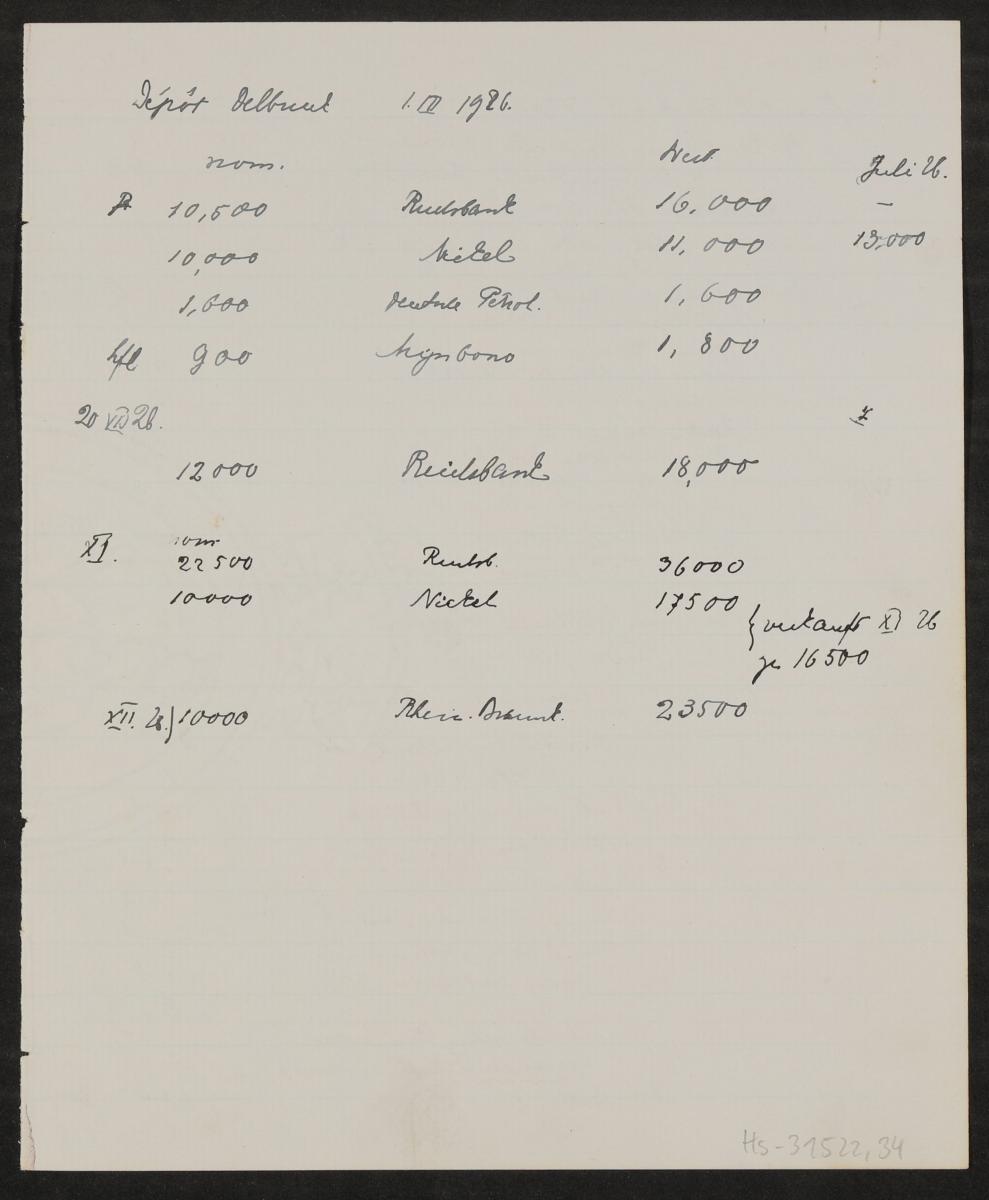 Dépôt Delbrück 1. IV 1926.
nom. Wert Juli 26.
10,500 Reichsbank 16,000 —
10,000 Nickel 11,000 13,000
1,600 deutsche Petrol. 1,600
hfl 900 1,800
20 VII 26.
12000 Reichsbank 18,000
XI. nom.
22500 Reichsb. 36000
10000 Nickel 17500
{ verkauft XI 26
zu 16500
XII. 26.) 10000 Rhein. Braunk. 23500
Hs-31522,34